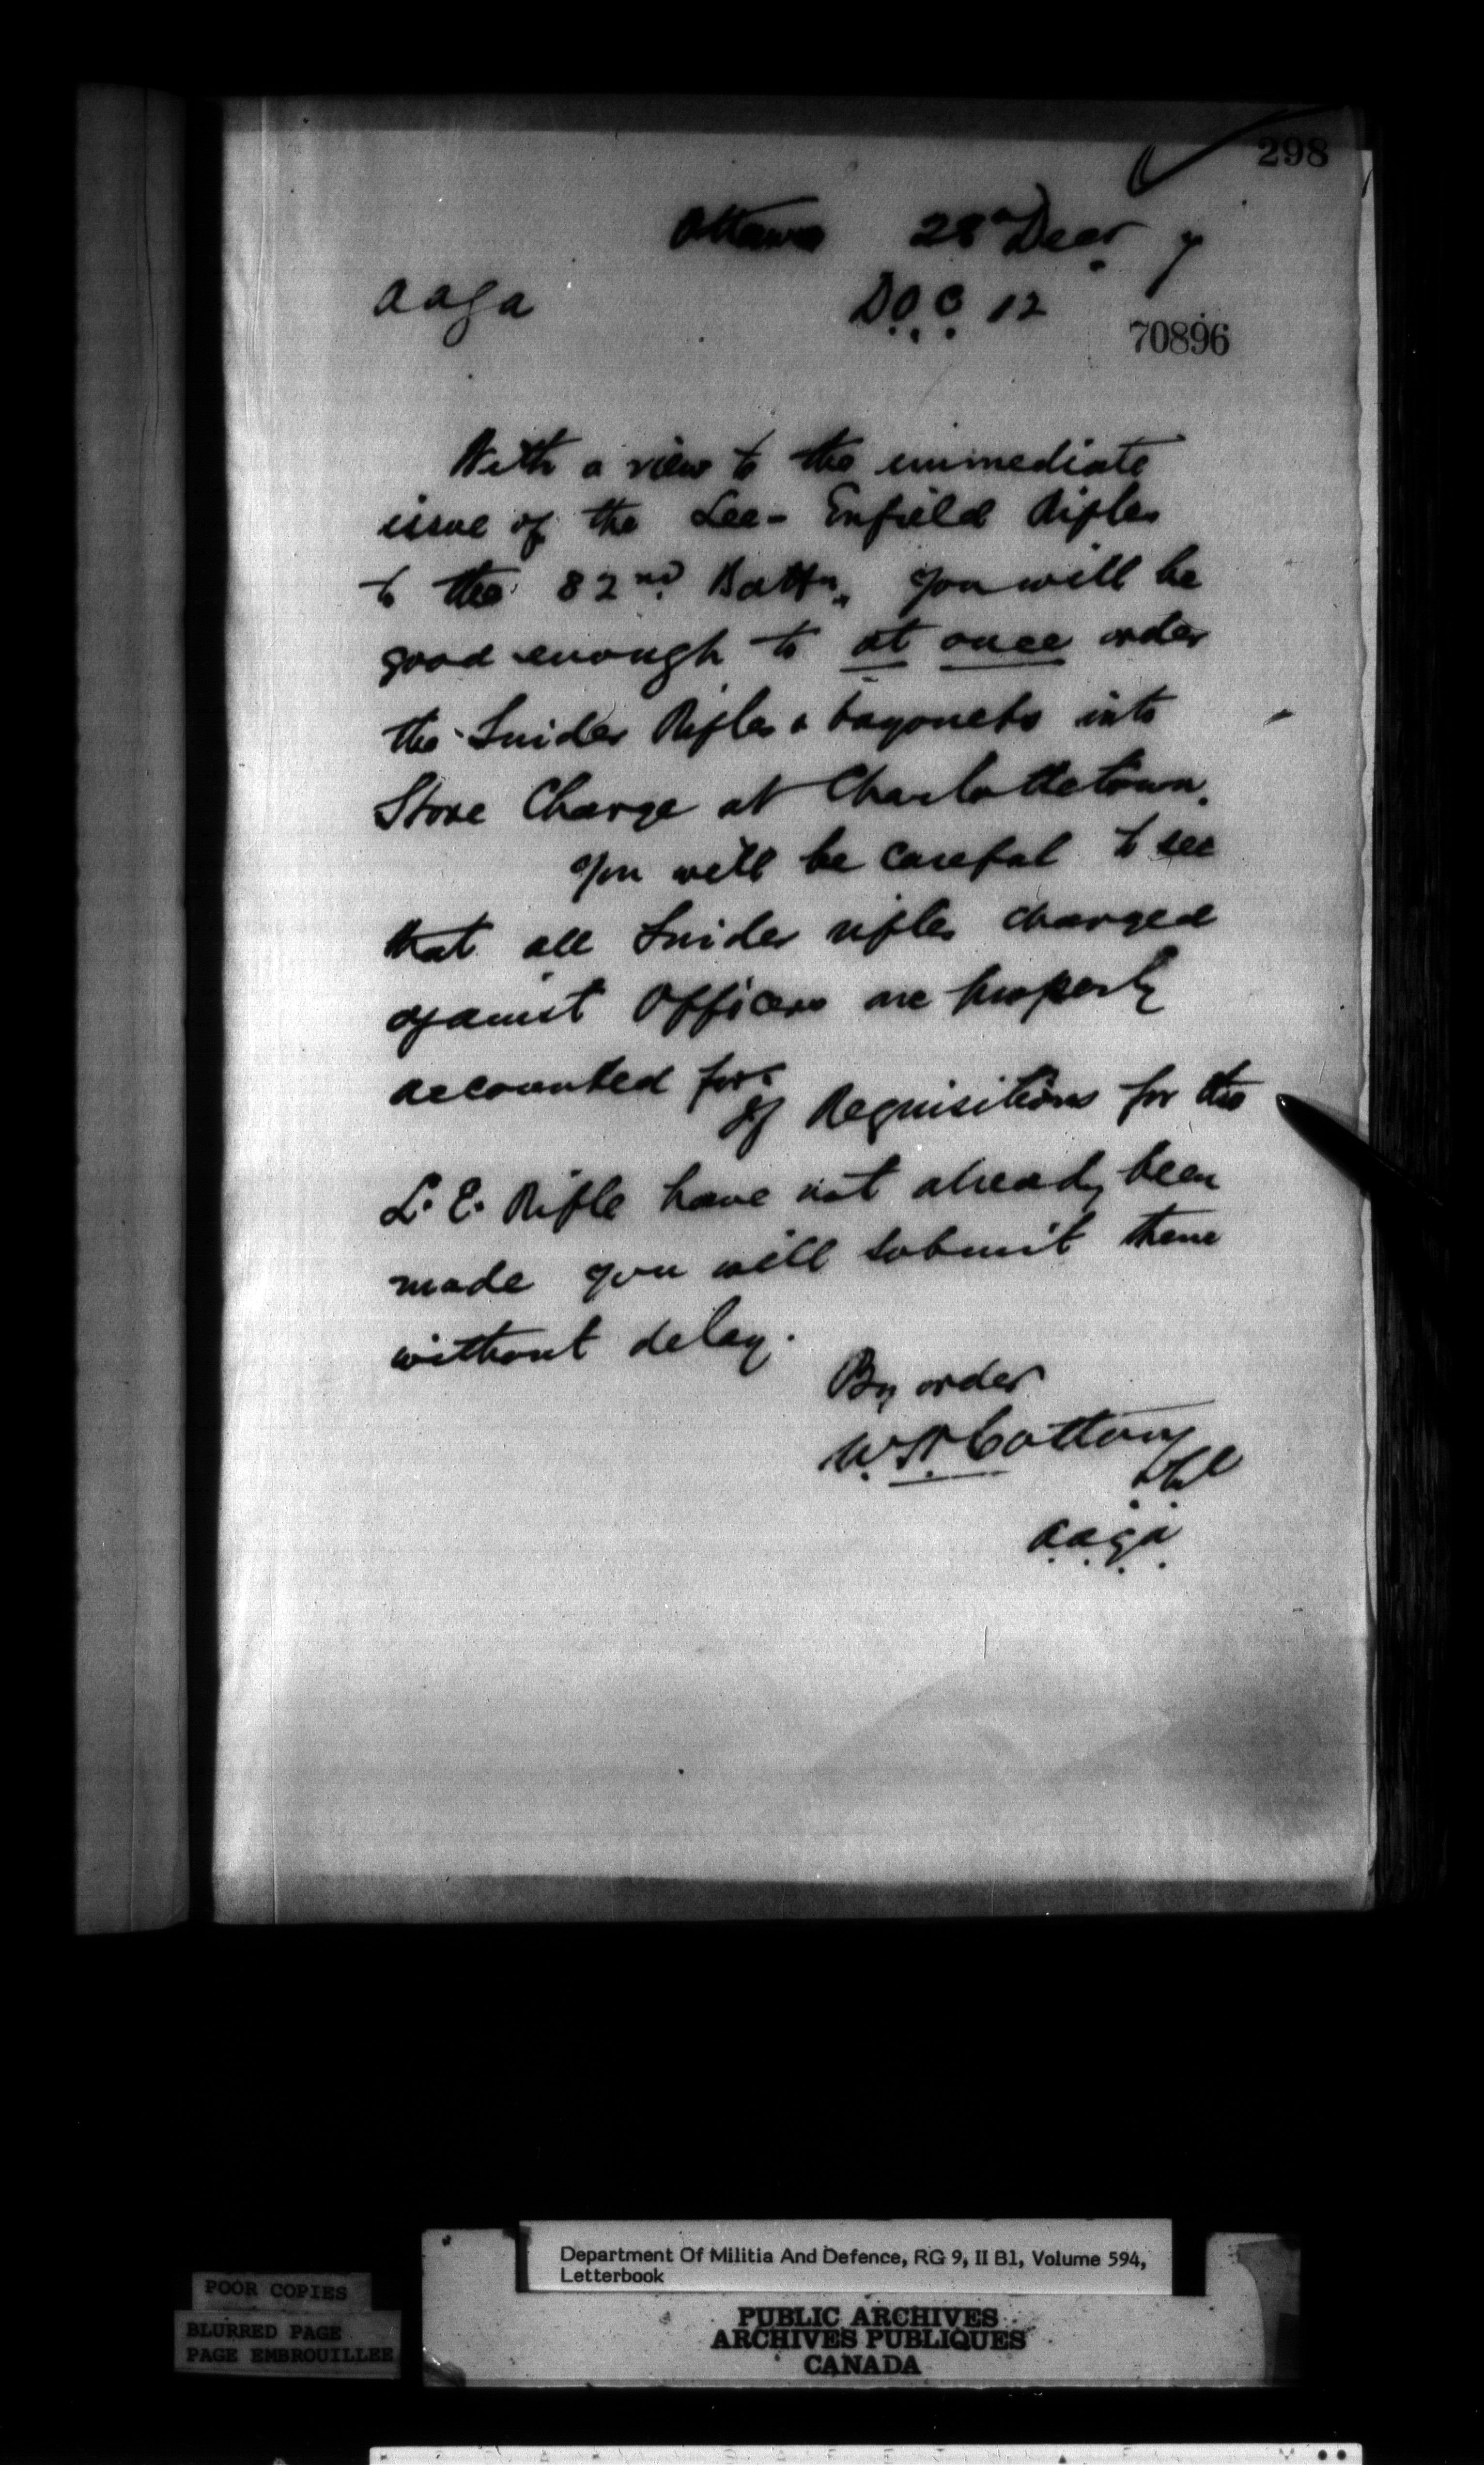 298
Ottawa 28th Decr 7
aaga D.O.C. 12
70896
With a view to the immediate
issue of the Lee-Enfield Rifles
to the 82nd Battn. you will be
good enough to at once order
the Snider Rifles & bayonets into
Store Charge at Charlottetown.
you will be careful to see
that all Snider rifles charged
against Officers are properly
accounted for.
If Requisitions for the
L. E. Rifle have not already been
made you will submit them
without delay.
By order
W.H. Cotton
a.a.g.a.
Department Of Militia And Defence, RG 9, II B1, Volume 594,
Letterbook
POOR COPIES
BLURRED PAGE
PAGE EMBROUILLEE
PUBLIC ARCHIVES
ARCHIVES PUBLIQUES
CANADA